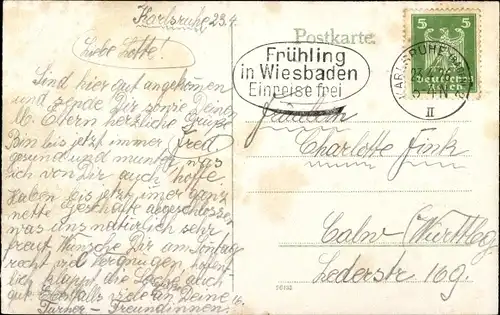 Karlsruhe 23.4.
Liebe Lotte!
Sind hier gut angekommen
und sende Dir sowie Deinen
lb. Eltern herzliche Grüße
Bin bis jetzt immer Fred
gesund und munter, was
ich von Dir auch hoffe.
Haben bis jetzt immer ganz
nette Geschäfte abgeschlossen
was uns natürlich sehr
freut. Wünsche Dir am Sonntag
recht viel Vergnügen, hoffent-
lich klappt die Sache auch
gut. Ebenfalls viele an Deine lb.
Turner-Freundinnen.
Postkarte
Frühling
in Wiesbaden
Einreise frei
5 5
Deutsches
Reich
KARLSRUHE
II
Fräulein
Charlotte Fink
Calw (Württbg.
Lederstr 169.